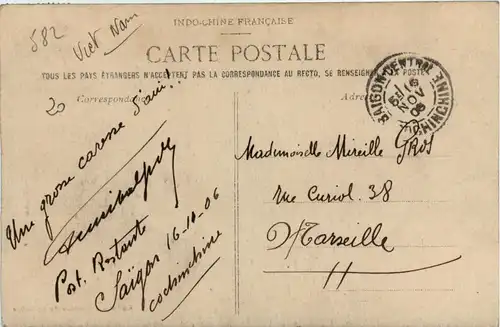 582
Viet Nam
INDO-CHINE FRANÇAISE
CARTE POSTALE
TOUS LES PAYS ÉTRANGERS N'ACCEPTENT PAS LA CORRESPONDANCE AU RECTO, SE RENSEIGNER POSTE
20
Correspondance
Adre
SAIGON-CENTRAL
16
NOV
06
COCHINCHINE
Une grosse caresse d'ami!!
Post. Restante
Saïgon 16-10-06
cochinchine
Mademoiselle Mireille GROS
rue Curiol. 38
Marseille